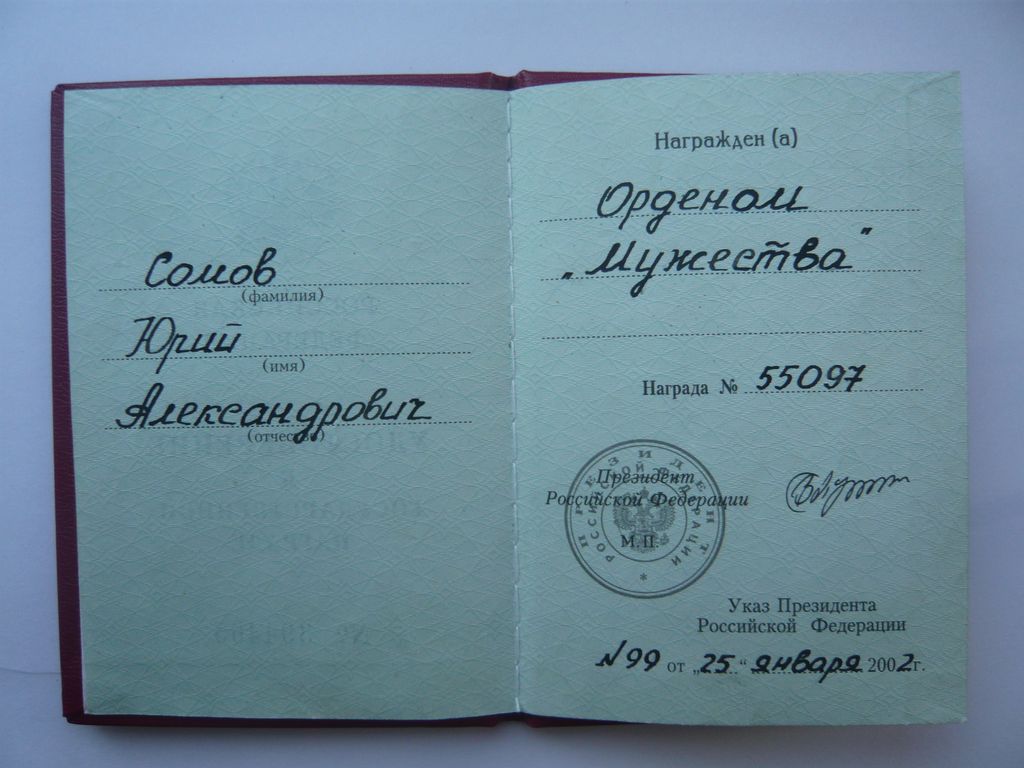 Сомов
(фамилия)
Юрий
(имя)
Александрович
(отчество)
Награжден (а)
Орденом
„Мужества"
Награда № 55097
ПРЕЗИДЕНТ
РОССИЙСКОЙ ФЕДЕРАЦИИ
Президент
Российской Федерации
М.П.
Указ Президента
Российской Федерации
N99 от „25“ января 2002г.